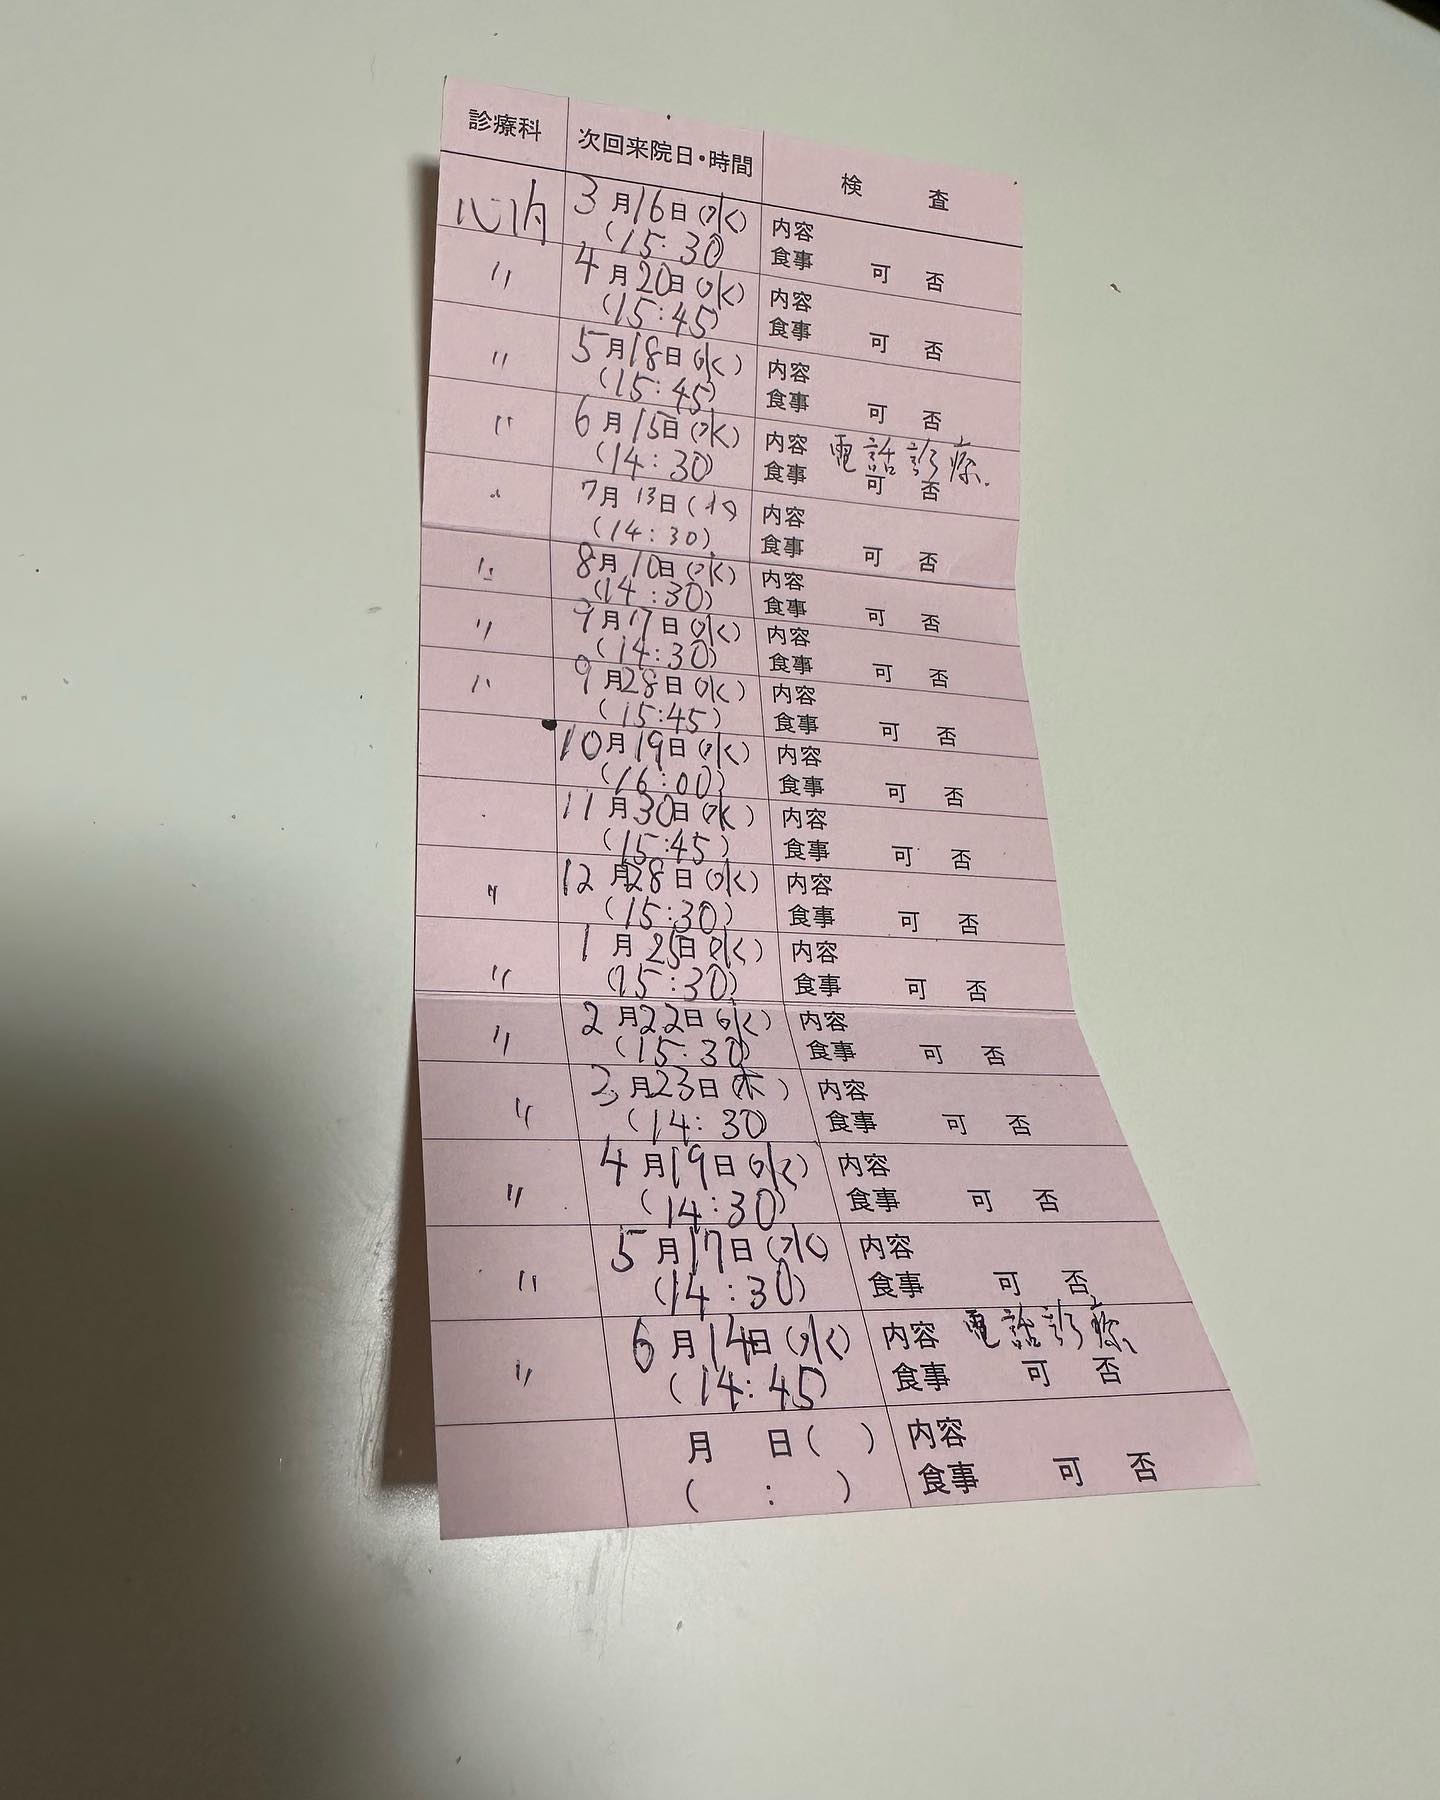 診療科 次回来院日・時間 検査
心内 3月16日(水) 内容
(15:30 食事 可 否
〃 4月20日(水) 内容
(15:45) 食事 可 否
〃 5月18日(水) 内容
(15:45) 食事 可 否
〃 6月15日(水) 内容 電話診療.
(14:30) 食事 可 否
〃 7月13日(水 内容
(14:30) 食事 可 否
〃 8月10日(水) 内容
(14:30) 食事 可 否
〃 9月17日(水) 内容
(14:30) 食事 可 否
〃 9月28日(水) 内容
(15:45) 食事 可 否
10月19日(水) 内容
(16:00) 食事 可 否
11月30日(水) 内容
(15:45) 食事 可 否
〃 12月28日(水) 内容
(15:30) 食事 可 否
〃 1月25日(水) 内容
(15:30) 食事 可 否
〃 2月22日(水) 内容
(15:30) 食事 可 否
〃 月23日(木) 内容
(14:30) 食事 可 否
〃 4月19日(水) 内容
(14:30) 食事 可 否
〃 5月17日(水) 内容
(14:30) 食事 可 否
〃 6月14日(水) 内容 電話診療、
(14:45) 食事 可 否
月 日( ) 内容
( : ) 食事 可 否